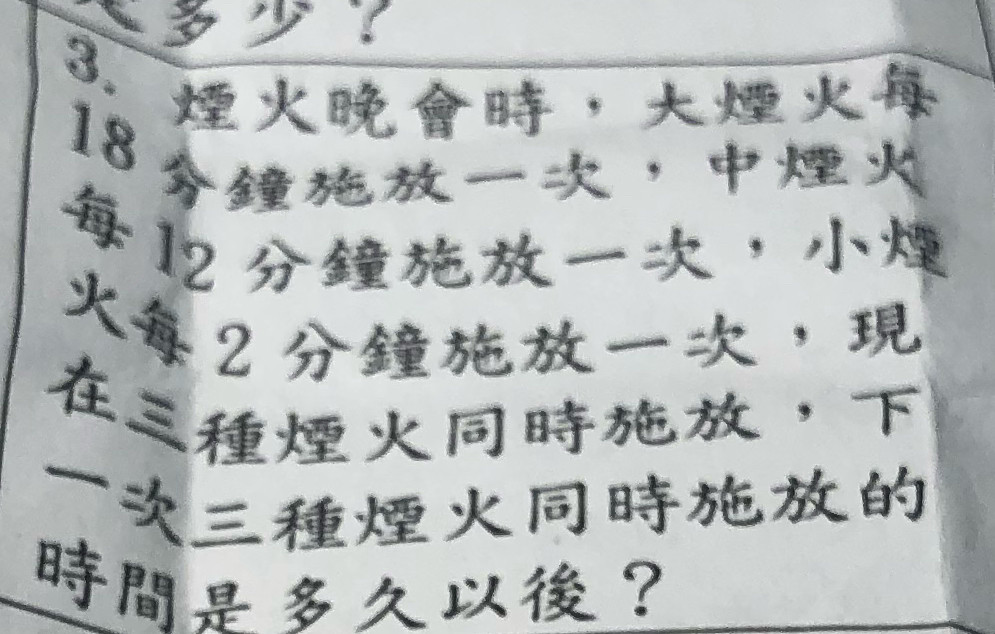 多少？
3.
煙火晚會時，大煙火每
18 分鐘施放一次，中煙火
每 12 分鐘施放一次，小煙
火每 2 分鐘施放一次，現
在三種煙火同時施放，下
一次三種煙火同時施放的
時間是多久以後？